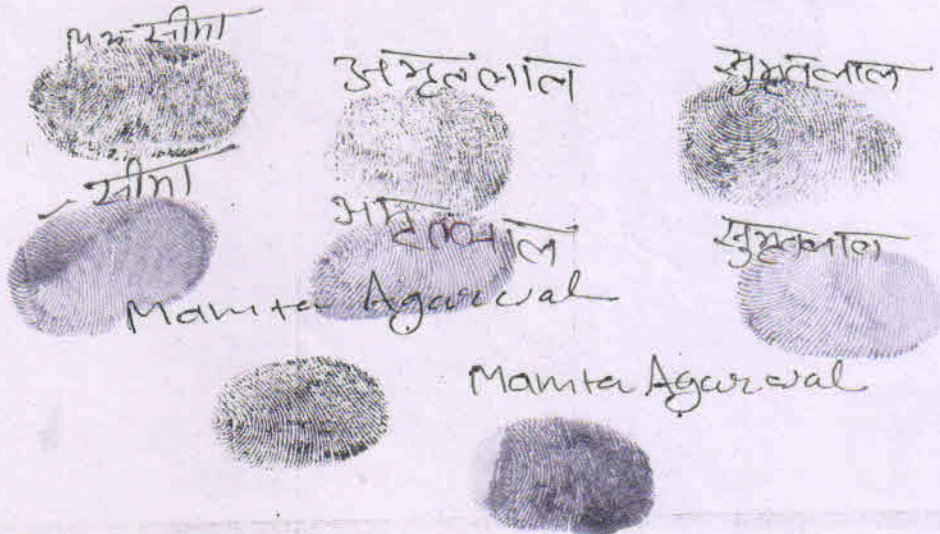 सीमा
अमृतलाल
सुमृतलाल
सीमा
अमृतलाल
सुमृतलाल
Mamta Agarwal
Mamta Agarwal